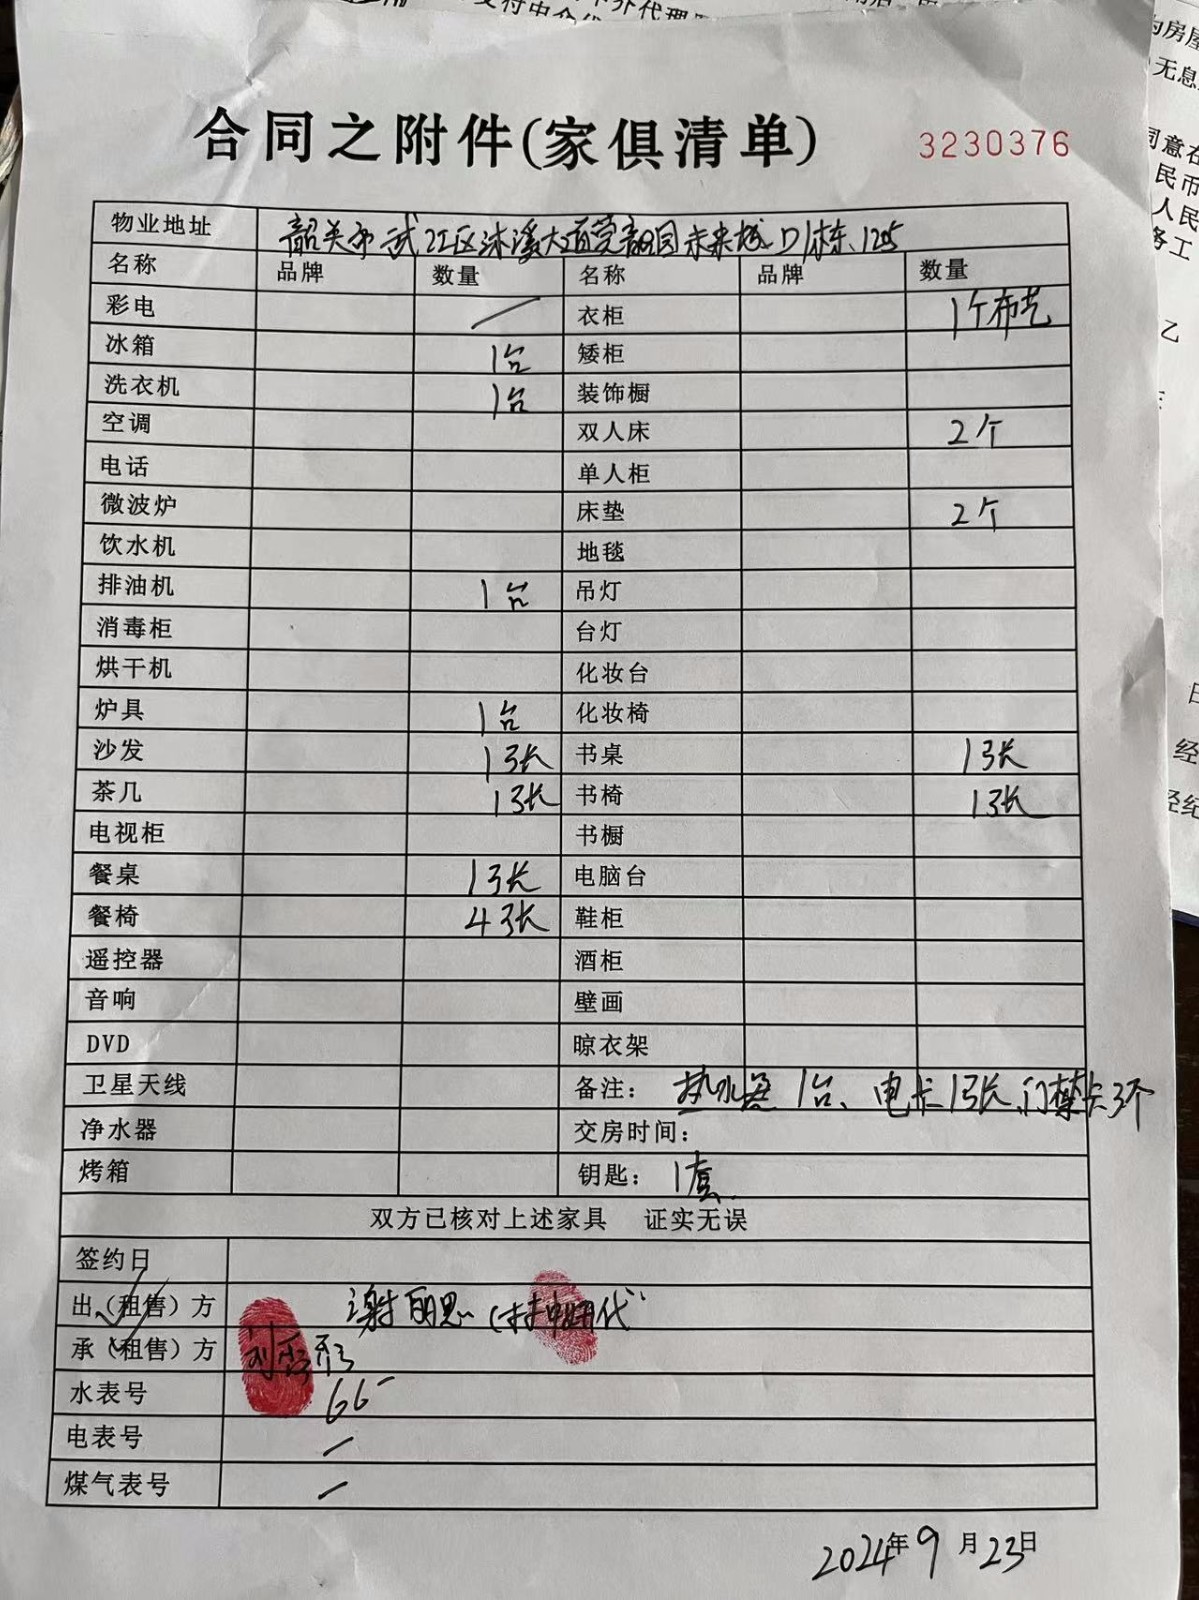 合同之附件(家俱清单) 3230376
物业地址 韶关市武江区沐溪大道莞韶园未来城D1栋1205
名称 品牌 数量 名称 品牌 数量
彩电 / 衣柜 1个布艺
冰箱 1台 矮柜
洗衣机 1台 装饰橱
空调 双人床 2个
电话 单人柜
微波炉 床垫 2个
饮水机 地毯
排油机 1台 吊灯
消毒柜 台灯
烘干机 化妆台
炉具 1台 化妆椅
沙发 1张 书桌 1张
茶几 1张 书椅 1张
电视柜 书橱
餐桌 1张 电脑台
餐椅 4张 鞋柜
遥控器 酒柜
音响 壁画
DVD 晾衣架
卫星天线 备注: 热水器1台、电卡1张、门禁卡3个
净水器 交房时间:
烤箱 钥匙: 1套
双方已核对上述家具 证实无误
签约日
出(租售)方 谢 思 代
承(租售)方 刘
水表号 66
电表号 —
煤气表号 —
2024年9月23日